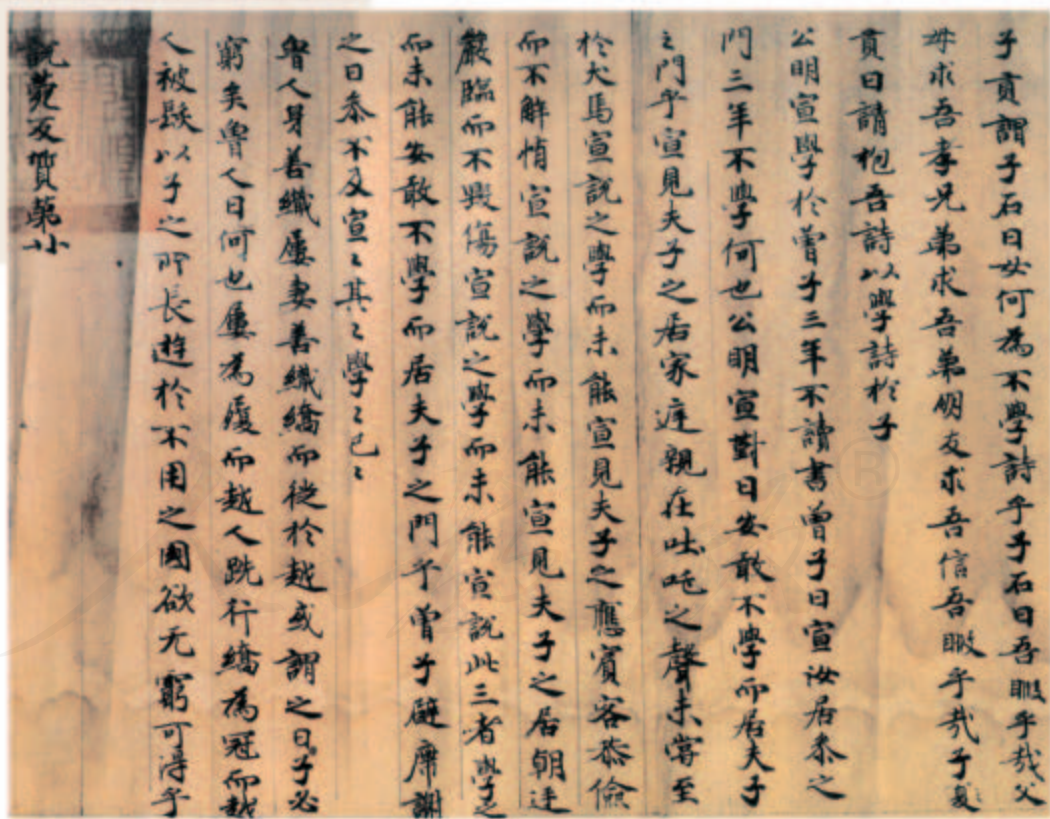 子貢謂子石曰女何為不學詩乎子石曰吾暇乎哉父
母求吾孝兄弟求吾弟朋友求吾信吾暇乎哉子夏
貢曰請抱吾詩以學詩於子
公明宣學於曾子三年不讀書曾子曰宣汝居叅之
門三年不學何也公明宣對曰安敢不學而居夫子
之門乎宣見夫子之居家庭親在叱吒之聲未嘗至
於犬馬宣説之學而未能宣見夫子之應賓客恭儉
而不解惰宣説之學而未能宣見夫子之居朝廷
嚴臨而不毀傷宣説之學而未能宣説此三者學之
而未能安敢不學而居夫子之門乎曾子避席謝
之曰叅不及宣〻其〻學〻已〻
魯人身善織屨妻善織縞而徙於越或謂之曰子必
窮矣魯人曰何也屨為履而越人跣行縞為冠而越
人被髮以子之所長遊於不用之國欲无窮可得乎
説苑反質第廿